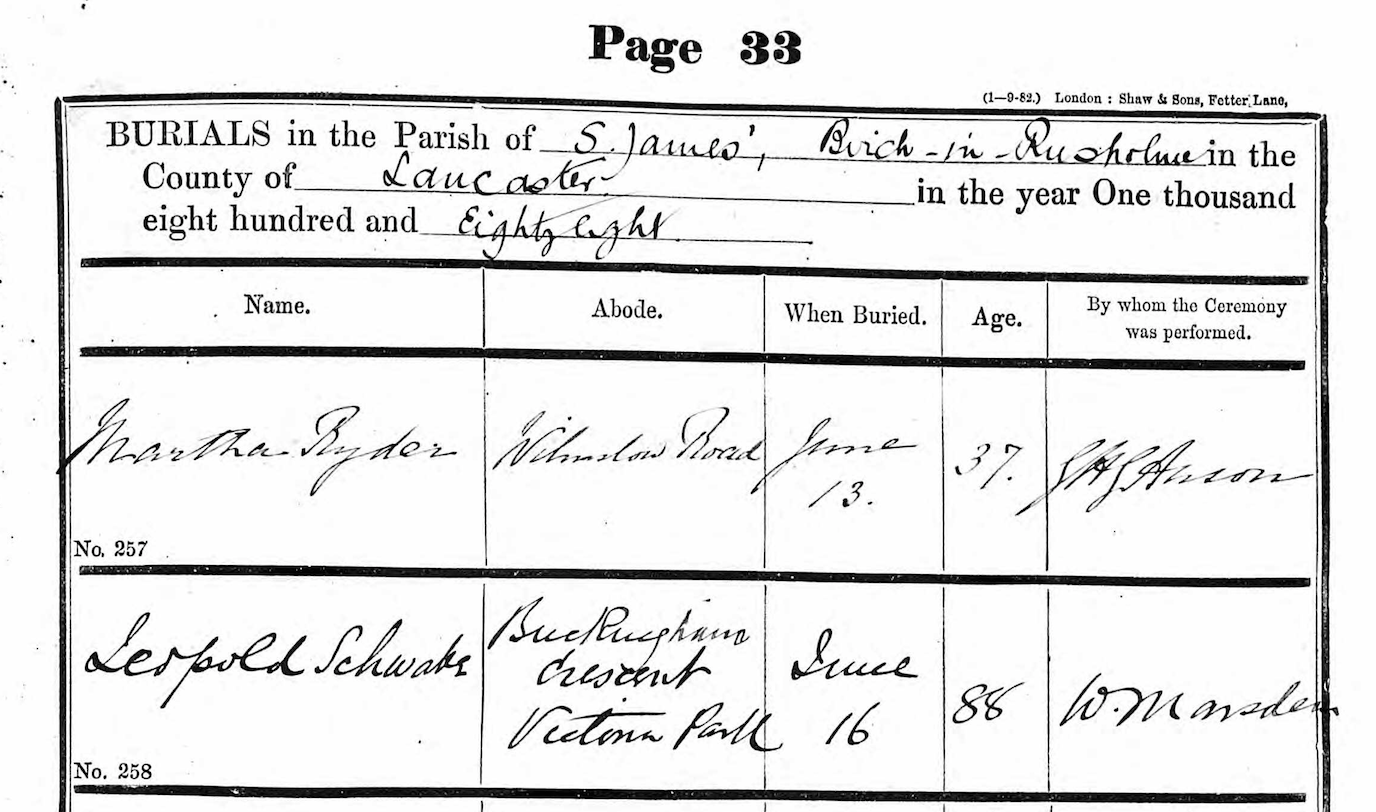 Page 33
(1—9-82.) London : Shaw & Sons, Fetter Lane,
BURIALS in the Parish of S. James', Birch-in-Rusholme in the
County of Lancaster. in the year One thousand
eight hundred and Eighty eight.
Name. Abode. When Buried. Age. By whom the Ceremony
was performed.
Martha Ryder Wilmslow Road June 37. G H G Anson
13.
No. 257
Leopold Schwabe Buckingham
Crescent June 88 W. Marsden
Victoria Park 16
No. 258